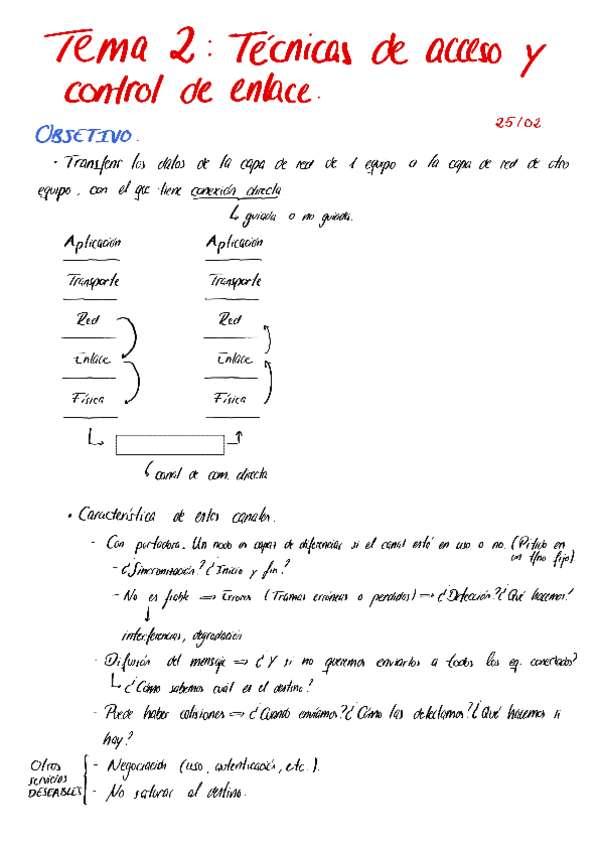 Tema 2: Técnicas de acceso y
control de enlace.
25/02
OBJETIVO.
· Transferir los datos de la capa de red de 1 equipo a la capa de red de otro
equipo, con el que tiene conexión directa
↳ guiada o no guiada.
Aplicación Aplicación
Transporte Transporte
Red Red
Enlace Enlace
Física Física
↳ canal de com. directa
• Característica de estos canales.
- Con portadora. Un nodo es capaz de diferenciar si el canal está en uso o no. (Pitido en
un tfno fijo)
- ¿Sincronización? ¿Inicio y fin?
- No es fiable ⇒ Errores (Tramas erróneas o perdidas) → ¿Detección? ¿Qué hacemos?
interferencias, degradación
- Difusión del mensaje ⇒ ¿Y si no queremos enviarlos a todos los eq. conectados?
↳ ¿Cómo sabemos cuál es el destino?
- Puede haber colisiones ⇒ ¿Cuando enviamos? ¿Cómo las detectamos? ¿Qué hacemos si
hay?
Otros
servicios
DESEABLES
- Negociación (uso, autenticación, etc.).
- No saturar al destino.